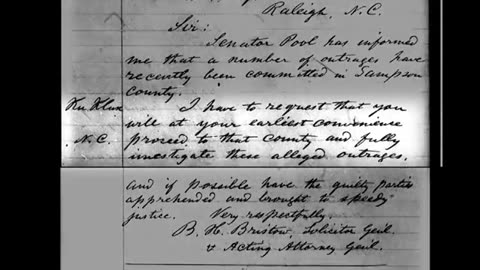 Raleigh, N.C.
Sir:
Senator Pool has informed
me that a number of outrages have
recently been committed in Sampson
County.
Ku Klux
N.C.
I have to request that you
will at your earliest convenience
proceed to that County and fully
investigate these alleged outrages.
and if possible have the guilty parties
apprehended and brought to speedy
justice.
Very respectfully.
B. H. Bristow, Solicitor Genl.
& Acting Attorney Genl.